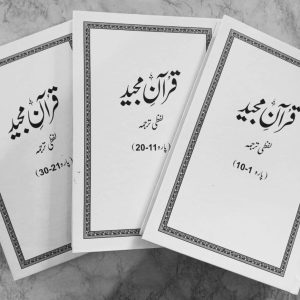 قرآن مجید
لفظی ترجمہ
(پارہ 1-10)
قرآن مجید
لفظی ترجمہ
(پارہ 11-20)
قرآن مجید
لفظی ترجمہ
(پارہ 21-30)